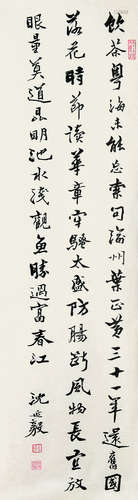 飲茶粵海未能忘索句渝州葉正黄三十一年還舊國
落花時節讀華章牢騷太盛防腸斷風物長宜放
眼量莫道昆明池水淺觀魚勝過富春江
沈延毅